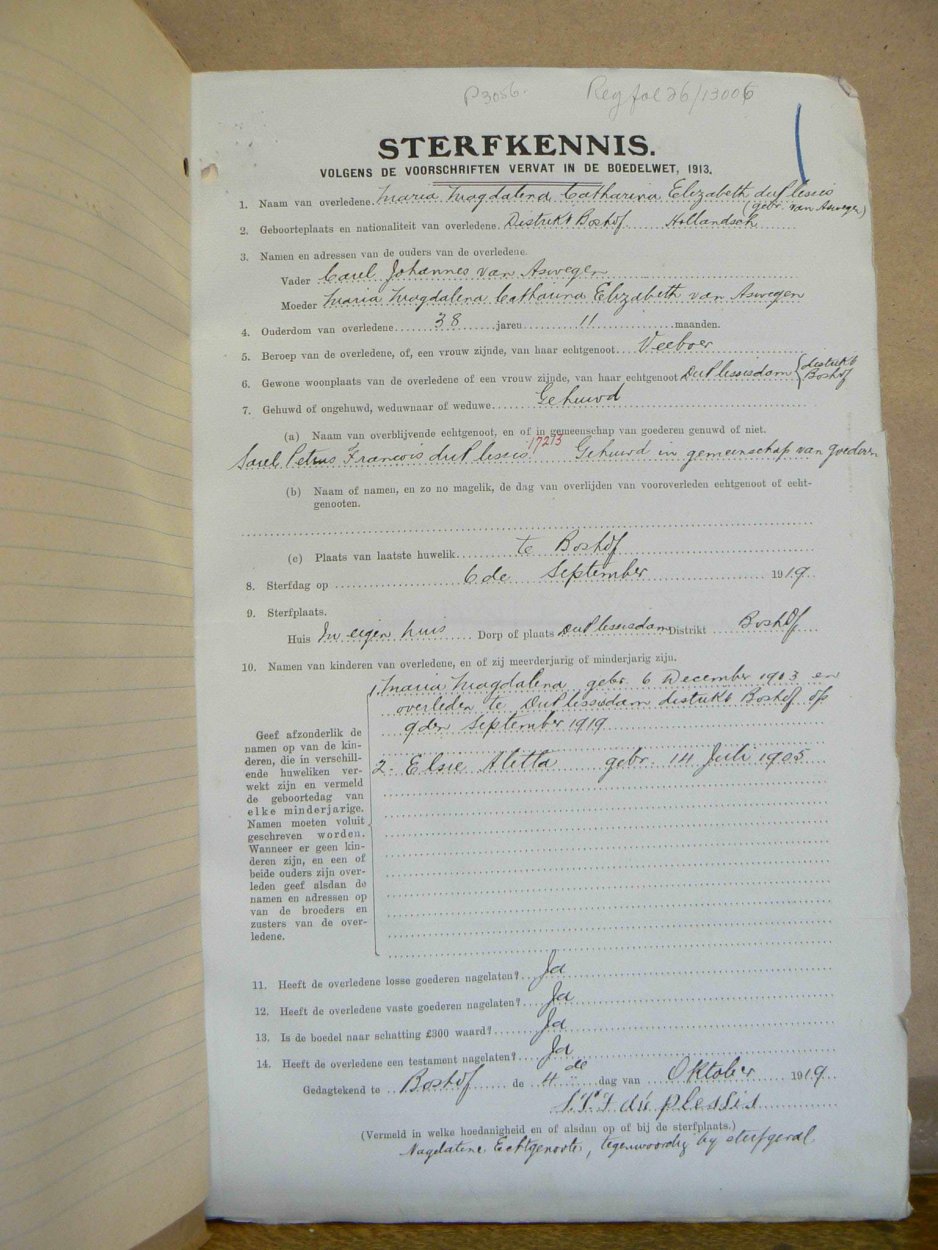 P3056. Reg fol 26/13006
STERFKENNIS.
VOLGENS DE VOORSCHRIFTEN VERVAT IN DE BOEDELWET, 1913.
1. Naam van overledene. Maria Magdalena Catharina Elizabeth du Plessis
(gebr. van Aswegen)
2. Geboorteplaats en nationaliteit van overledene. Distrikt Boshof Hollandsch
3. Namen en adressen van de ouders van de overledene
Vader Carel Johannes van Aswegen
Moeder Maria Magdalena Catharina Elizabeth van Aswegen
4. Ouderdom van overledene 38 jaren 11 maanden.
5. Beroep van de overledene, of, een vrouw zijnde, van haar echtgenoot Veeboer
6. Gewone woonplaats van de overledene of een vrouw zijnde, van haar echtgenoot DuPlessisdam { distrikt Boshof
7. Gehuwd of ongehuwd, weduwnaar of weduwe Gehuwd
(a) Naam van overblijvende echtgenoot, en of in gemeenschap van goederen genuwd of niet.
Petrus Francois du Plessis 17213 Gehuwd in gemeinschap van goederen
(b) Naam of namen, en zo no magelik, de dag van overlijden van vooroverleden echtgenoot of echt-
genooten.
(c) Plaats van laatste huwelik te Boshof
8. Sterfdag op 6de September 1919
9. Sterfplaats.
Huis In eigen huis Dorp of plaats DuPlessisdam Distrikt Boshof
10. Namen van kinderen van overledene, en of zij meerderjarig of minderjarig zijn.
1. Maria Magdalena gebr. 6 December 1903 en
overleden te DuPlessisdam distrikt Boshof op
9den September 1919
2. Elsie Aletta gebr. 14 Juli 1905
Geef afzonderlik de
namen op van de kin-
deren, die in verschill-
ende huweliken ver-
wekt zijn en vermeld
de geboortedag van
elke minderjarige.
Namen moeten voluit
geschreven worden.
Wanneer er geen kin-
deren zijn, en een of
beide ouders zijn over-
leden geef alsdan de
namen en adressen op
van de broeders en
zusters van de over-
ledene.
11. Heeft de overledene losse goederen nagelaten? Ja
12. Heeft de overledene vaste goederen nagelaten? Ja
13. Is de boedel naar schatting £300 waard? Ja
14. Heeft de overledene een testament nagelaten? Ja
Gedagtekend te Boshof de 4de dag van Oktober 1919
du Plessis
(Vermeld in welke hoedanigheid en of alsdan op of bij de sterfplaats.)
Nagelatene Echtgenoote, tegenwoordig by sterfgeval